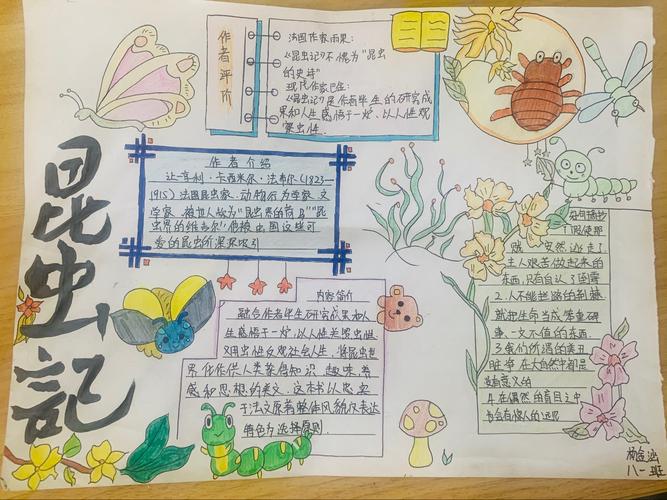 昆虫記
作者评价
法国作家雨果:
《昆虫记》不愧为“昆虫
的史诗”
现代作家巴金:
《昆虫记》是作者毕生的研究成
果和人生感悟于一炉,以人性观
察虫性
作者介绍
让-亨利·卡西米尔·法布尔(1823—
1915)法国昆虫学家、动物行为学家、文
学家。被世人称为“昆虫界的荷马”“昆
虫界的维吉尔”
爱的昆虫所深深吸引
内容简介
融合作者毕生研究成果和人
生感悟于一炉,以人性关照虫性
又用虫性反观社会人生,将昆虫世
界化作供人类获得知识、趣味、美
感和思想的美文,这本书以忠实
于法文原著整体风貌及表达
特色为选择原则
贼 安然逃走了
主人艰苦做起来的
东西,只有自认了倒霉
2.人不能拦路的荆棘
就把生命当成零重研
事、一文不值的东西.
3.我们所谓的美丑
脏净在大自然中都是
没有意义的
4.在偶然的盲目之中
也会有惊人的远见
八一班